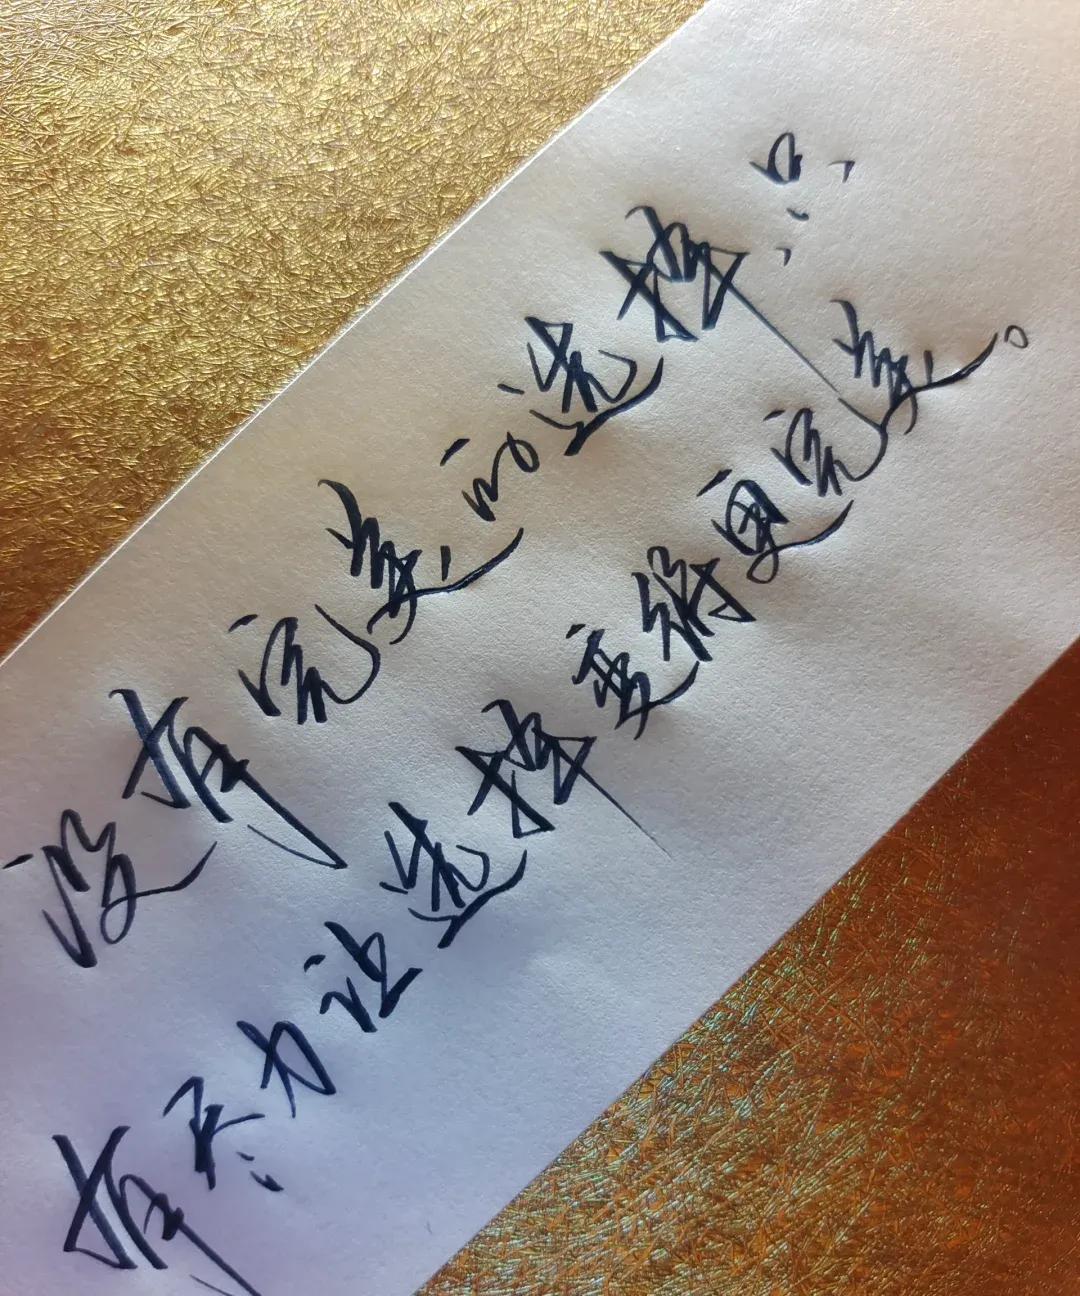 没有完美的选择，只
有尽力让选择变得更完美。